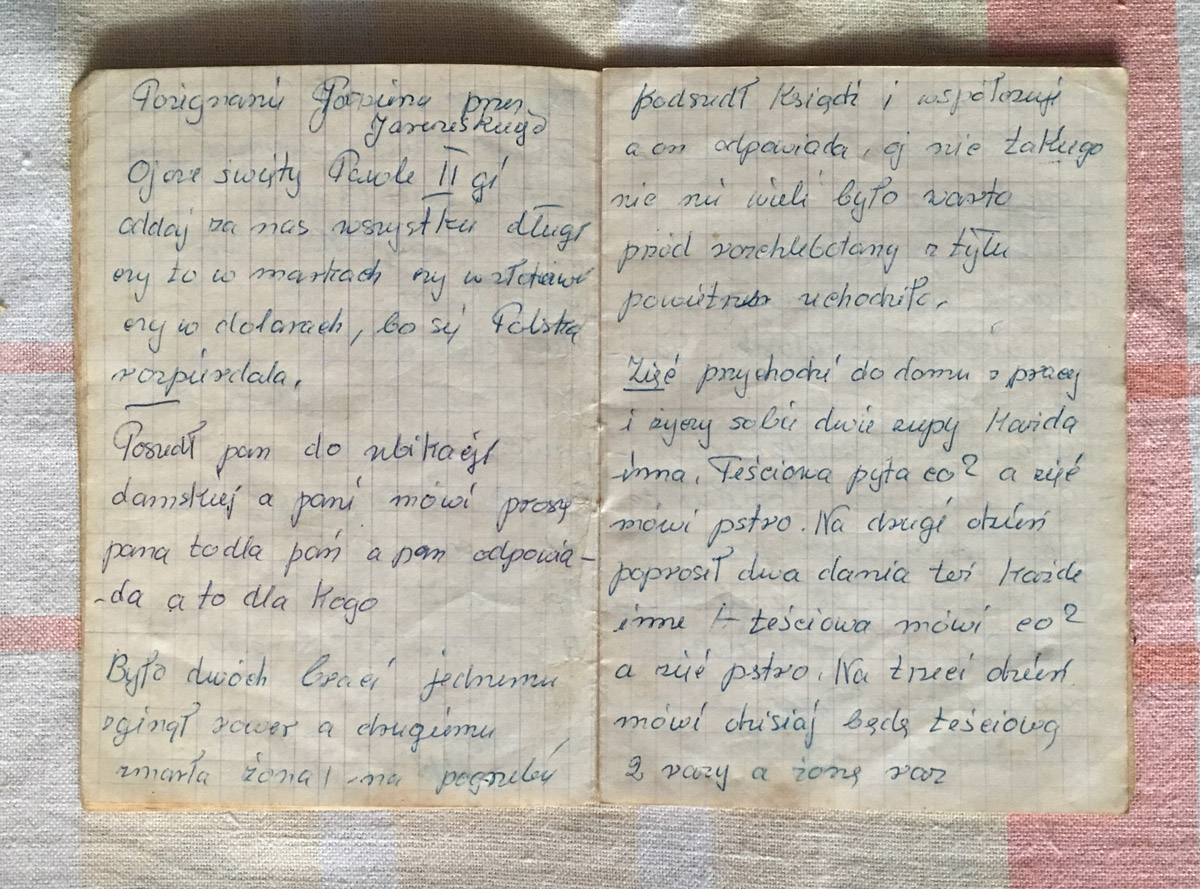 Pożegnanie Papieża przez
Jaruzelskiego
Ojcze święty Pawle II gi
oddaj za nas wszystkie długi
czy to w markach czy w złotów
czy w dolarach, bo się Polska
rozpierdala.
Poszedł pan do ubikacji
damskiej a pani mówi proszę
pana to dla pań a pan odpowia-
-da a to dla kogo
Było dwóch braci jednemu
zginął rower a drugiemu
zmarła żona, na pogrzebie
podszedł Ksiądz i współczuje
a on odpowiada, oj nie takiego
nie nie wiele było warto
przód rozchlebotany z tyłu
powietrze uchodziło.
Zięć przychodzi do domu z pracy
i życzy sobie dwie zupy każda
inna. Teściowa pyta co? a zięć
mówi pstro. Na drugi dzień
poprosił dwa dania też każde
inne teściowa mówi co?
a zięć pstro. Na trzeci dzień
mówi dzisiaj będę teściową
2 razy a żonę raz